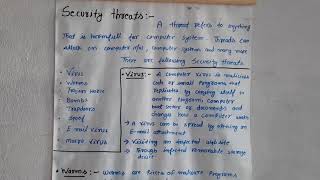 Security threats:-
A threat refers to anything
that is harmfull for computer system. Threats can
attack on computer n/w, computer system and many more
There are following Security threats
• Virus
• Worms
• Trojan Horse
• Bombs
• Trapdoors
• Spoof
• E-mail virus
• Macro virus
• Virus:- A computer virus is malicious
code or small programs that
replicates by copying itself to
another program computer
boot sector or documents and
change how a computer works
→ A virus can be spread by opening an
E-mail attachment
→ Visiting an infected web site
→ through infected removable storage
device.
• Worms:- Worms are form of malware programs